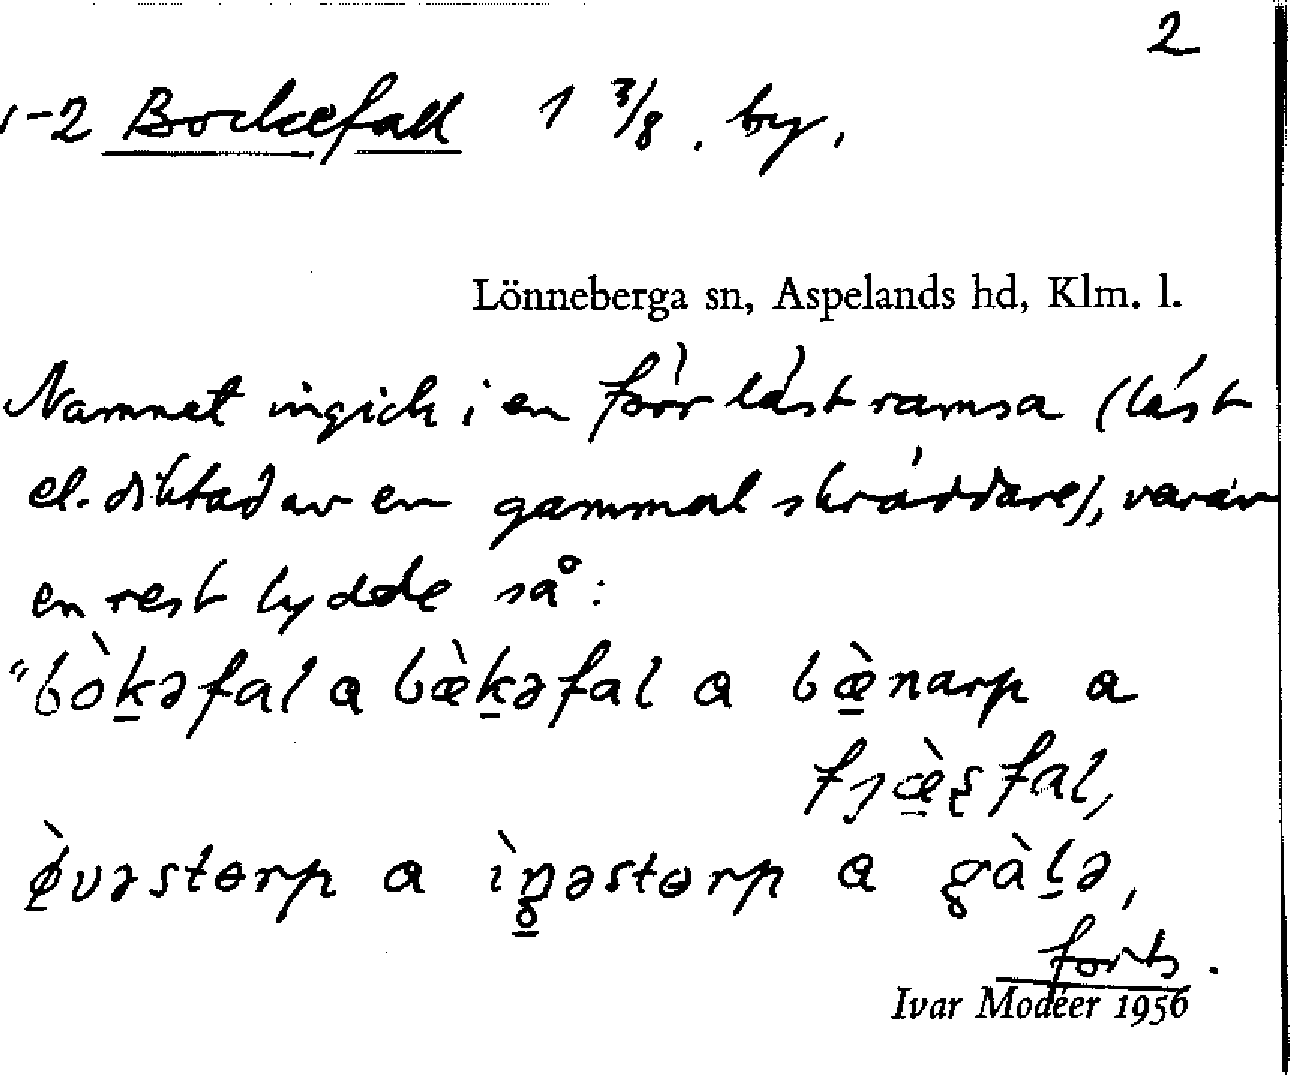 2
1-2 Bockefall 1 3/8. by.
Lönneberga sn, Aspelands hd, Klm. l.
Namnet ingick i en förr läst ramsa (läst
el. diktad av en gammal skräddare), varav
en rest lydde så:
"bòk̲əfal a bæ̀k̲əfal a bæ̲̀narp a
fjæ̲̀ʂfal,
ø̲̀vəstɵrp a ìŋ̲əstɵrp a gàl̲ə,
forts.
Ivar Modéer 1956